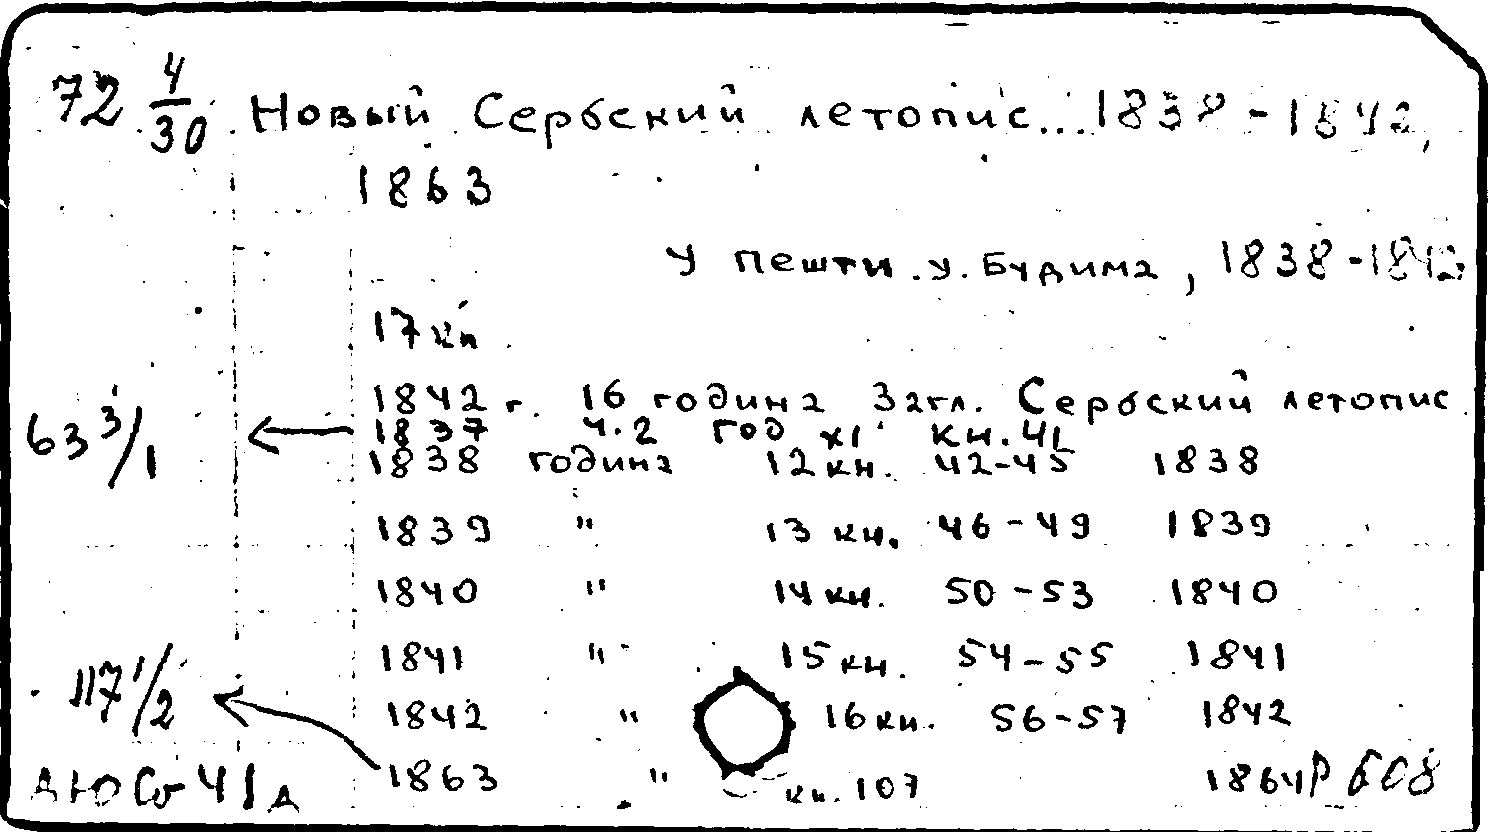 72 4/30 Новый Сербский летопис... 1838-1842,
1863
У Пешти.у.Будима, 1838-1842
17 кн
1842 г. 16 година Загл. Сербский летопис
63 3/1 ← 1837 ч.2 год XI кн.41
1838 година 12 кн. 42-45 1838
1839 " 13 кн. 46-49 1839
1840 " 14 кн. 50-53 1840
1841 " 15 кн. 54-55 1841
117 1/2 1842 " 16 кн. 56-57 1842
← 1863 " кн. 107 1864
41д Р 608